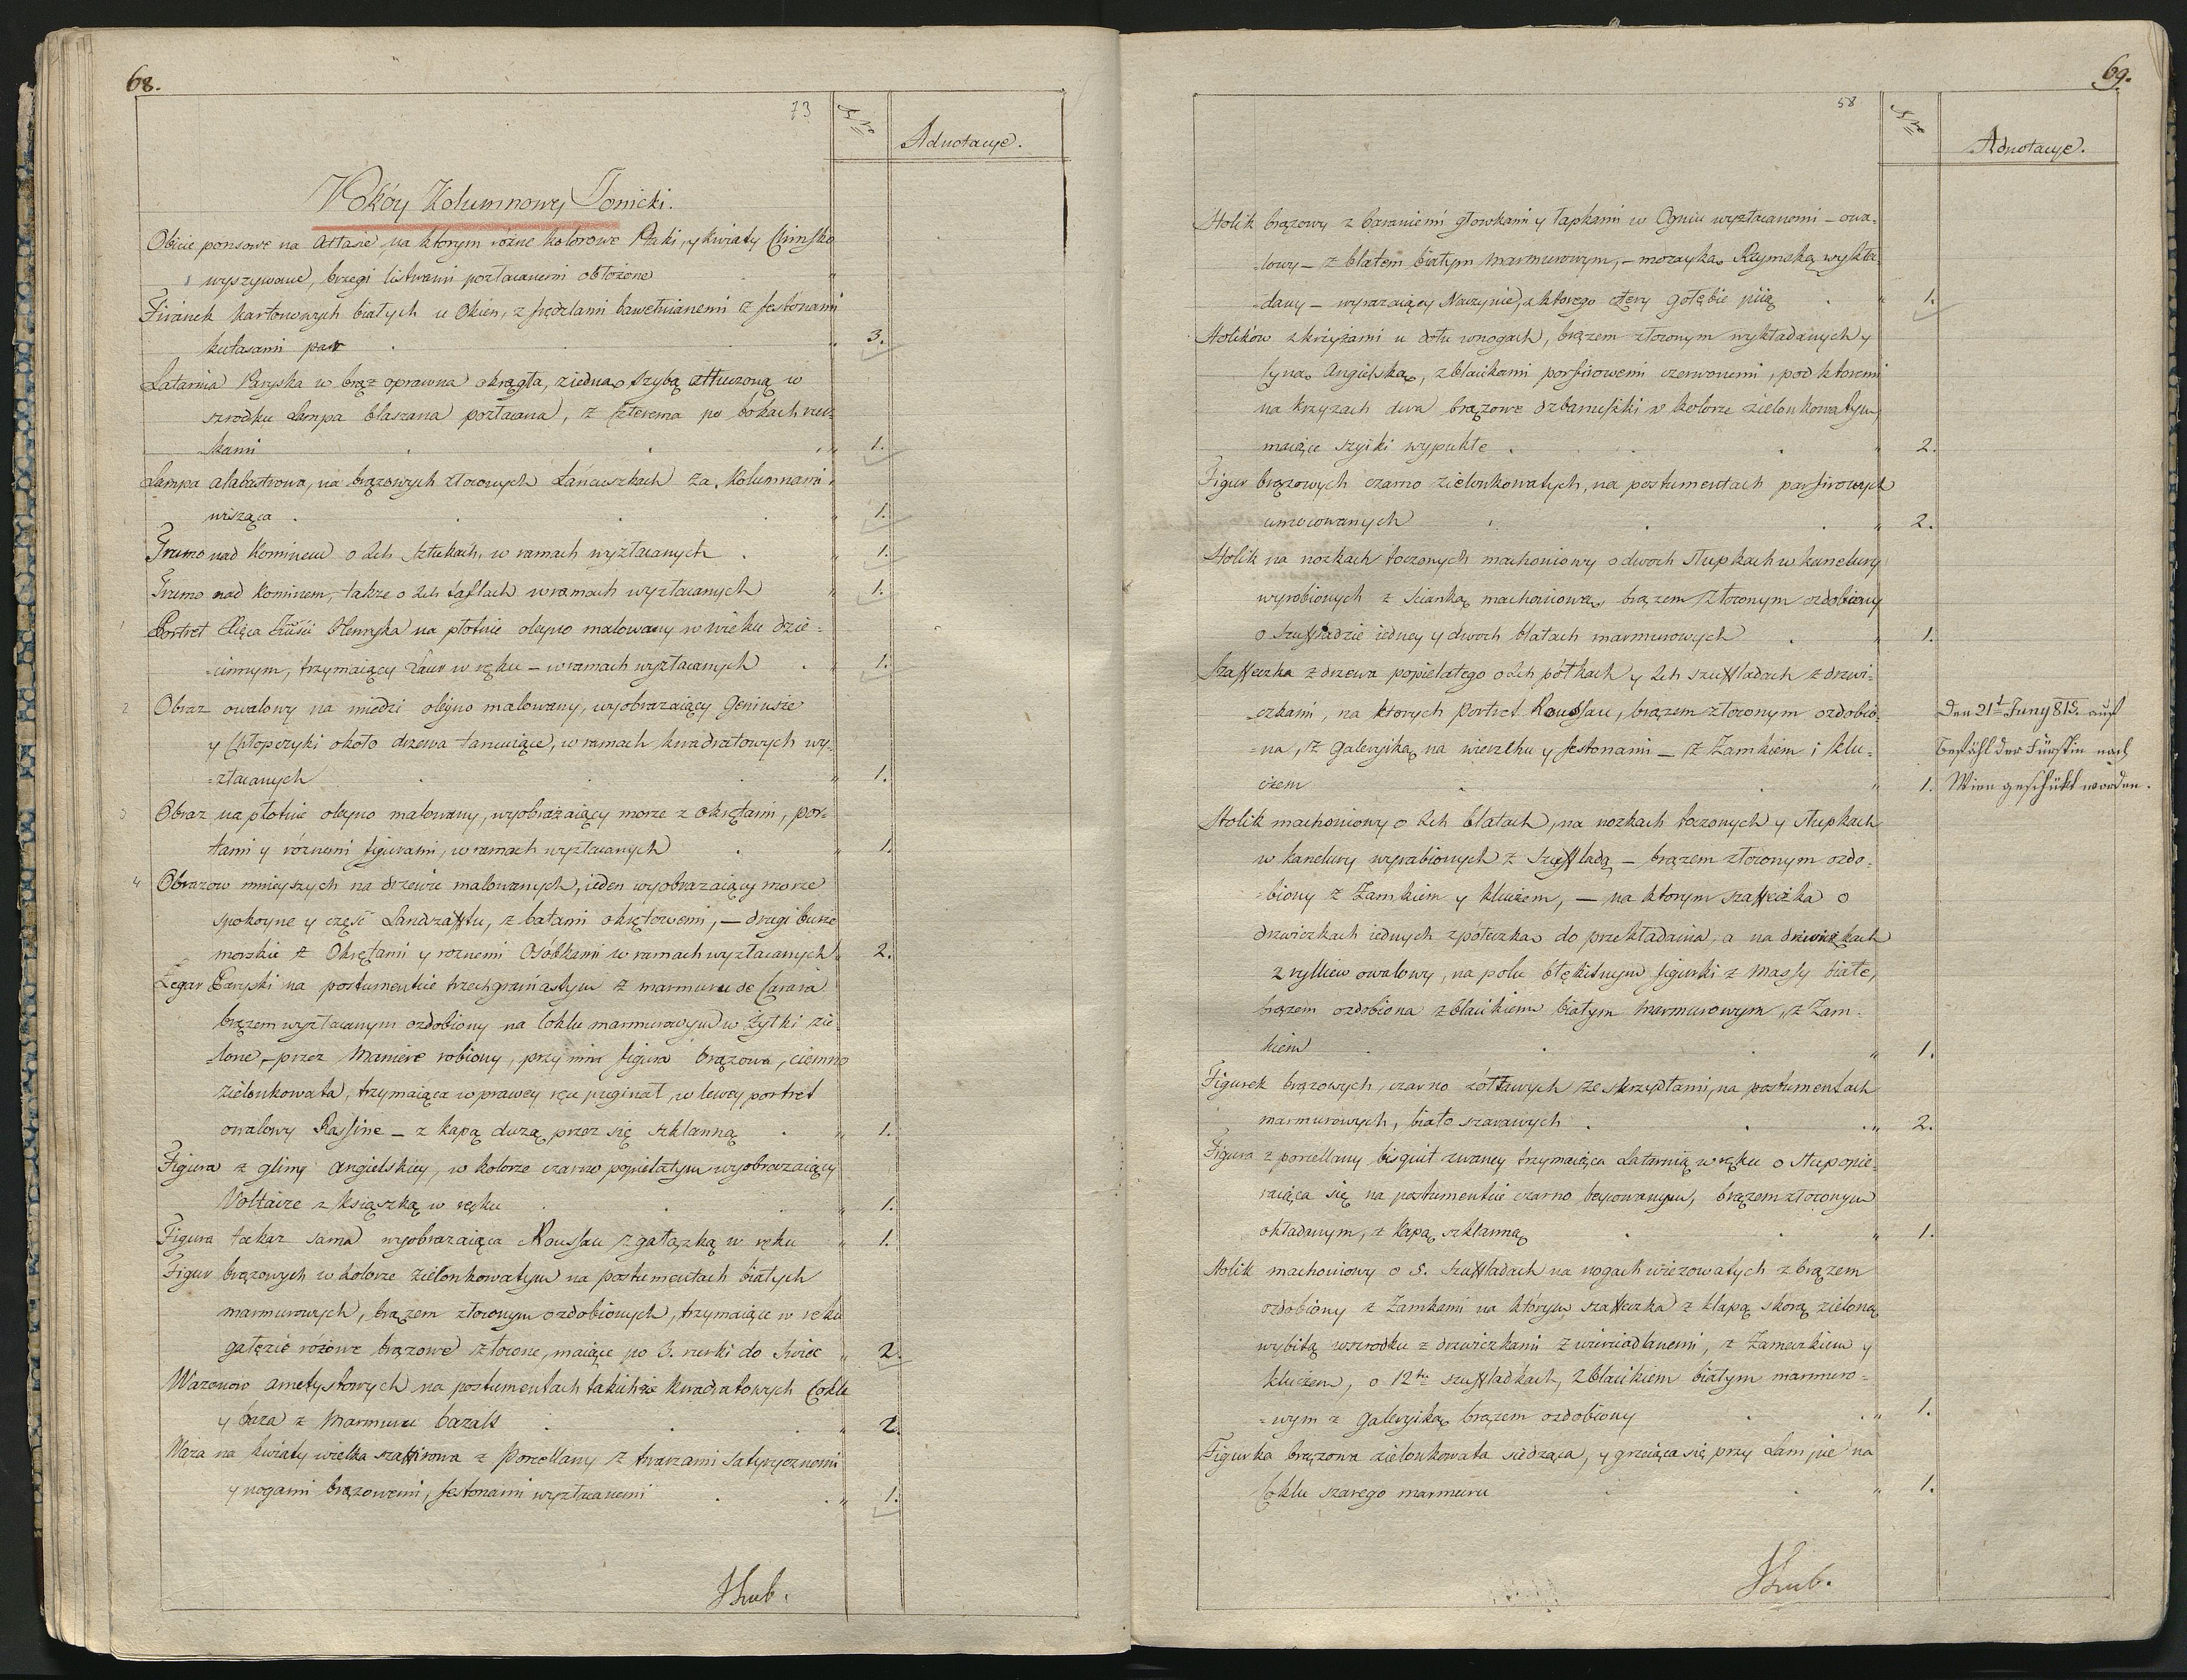 68.
73
Nro
Adnotacye.
Pokóy Kolumnowy Jonicki.
Obicie ponsowe na Attasie, na ktorym rożne kolorowe Ptaki, y kwiaty Chinsko
wyszywane, brzegi listwami pozłacanemi obłożone "
Firanek kartonowych białych u Okien, z frędzlami bawełnianemi z festonami
kutasami par . . . " 3.
Latarnia Paryska w brąz oprawna okrągła, z iedną szybą stłuczoną w
szrodku Lampa blaszana pozłacana, z czterema po bokach rur=
=kami . . . " 1.
Lampa alabastrowa, na brązowych złoconych Łańcuszkach za Kolumnami
wisząca . . . " 1.
Trumo nad Kominem o 2ch sztukach, w ramach wyzłacanych . " 1.
Trumo nad Kominem, także o 2ch taflach w ramach wyzłacanych " 1.
1 Portret Xięcia Henryka na płotnie oleyno malowany w wieku dzie=
=cinnym, trzymaiący Laur w ręku – w ramach wyzłacanych . " 1.
2 Obraz owalowy na miedzi oleyno malowany, wyobrazaiący Geniusze
y Chłopczyki około drzewa tancuiące, w ramach kwadratowych wy=
=złacanych . . . " 1.
3 Obraz na płotnie oleyno malowany, wyobrażaiący morze z okrętami, por=
tami y różnemi figurami, w ramach wyzłacanych . " 1.
4 Obrazow mnieyszych na drzewie malowanych, ieden wyobrazaiący morze
spokoyne y część Landszaftu, z batami okrętowemi, – drugi burze
morskie z Okrętami y roznemi Osóbkami w ramach wyzłacanych " 2.
Zegar Paryski na postumencie trzechgraniastym z marmuru de Carara
brązem wyzłacanym ozdobiony na Coklu marmurowym w żyłki zie=
=lone, przez Maniere robiony, przy nim figura brązowa, ciemno
zielonkowata, trzymaiąca w prawey ręce puginał, w lewey portret
owalowy Rassine – z kapą dużą przez się szklanną . " 1.
Figura z gliny angielskiey, w kolorze czarno popielatym wyobrazaiący
Voltaire z ksiąszką w ręku . . " 1.
Figura takaz sama wyobrazaiąca Roussau z gałązką w ręku " 1.
Figur brązowych w kolorze zielonkowatym na postumentach białych
marmurowych, brązem złoconym ozdobionych, trzymaiące w ręku
gałęzie różowe brązowe złocone, maiące po 3. rurki do Swiec " 2.
Wazonow ametystowych na postumentach takichże kwadratowych Cokle
y baza z Marmuru bazalt . . . " 2.
Waza na kwiaty wielka szafirowa z Porcellany z twarzami Satyrycznemi
y nogami brązowemi, festonami wyzłacanemi . . " 1.
69.
58
Nro
Adnotacye.
Stolik brązowy z baraniemi głowkami y łapkami w Ogniu wyzłacanemi – owa=
=lowy – z blatem białym Marmurowym, – mozayką Rzymską wykła=
=dany – wyrazaiący Naczynie, z ktorego cztery gołębie piią . " 1.
Stolików z krzyżami u dołu w nogach, brązem złoconym wykładanych y
Cyną Angielską, z blacikami porfirowemi czerwonemi, pod ktoremi
na krzyzach dwa brązowe dzbanuszki w kolorze zielonkowatym
maiące szyiki wypukłe . . . " 2.
Figur brązowych czarno zielonkowatych, na postumentach porfirowych
umocowanych . . . " 2.
Stolik na nozkach toczonych machoniowy o dwoch słupkach w kanelury
wyrobionych z scianką machoniową, brązem złoconym ozdobiony
o szufladzie iedney y dwoch blatach marmurowych . " 1.
Szafeczka z drzewa popielatego o 2ch półkach y 2ch szufladach z drzwi=
=czkami, na ktorych portret Roussau, brązem złoconym ozdobio=
=na, z Galeryiką na wierzchu y festonami – z Zamkiem i klu=
czem . . " 1.
Den 21t Juny 815. auf
Befähl der Fürstin nach
Wien geschükt worden.
Stolik machoniowy o 2ch blatach, na nozkach toczonych y słupkach
w kanelury wyrabionych z szufladą – brązem złoconym ozdo=
=biony z Zamkiem y kluczem, – na ktorym szafeczka o
drzwiczkach iednych z połeczką do przekładania, a na drzwiczkach
z ryłkiem owalowy, na polu błękitnym figurki z Massy białe,
brązem ozdobiona z blacikiem białym Marmurowym, z Zam=
kiem . . " 1.
Figurek brązowych, czarno żółtawych ze skrzydłami, na postumentach
marmurowych, biało szarawych . . " 2.
Figura z porcellany bisquit zwaney trzymaiąca Latarnią w ręku o słup opie=
raiąca się na postumencie czarno beycowanym, brązem złoconym
okładanym, z Kapą szklanną . . " 1.
Stolik machoniowy o 5. szufladach na nogach wiezowatych z brązem
ozdobiony z Zamkami na którym szafeczka z klapą skorą zieloną
wybitą w szrodku z drzwiczkami zwierciadlanemi, z Zameczkiem y
kluczem, o 12tu szufladkach, z blacikiem białym marmuro=
=wym z galeryiką brązem ozdobiony . . " 1.
Figurka brązowa zielonkowata siedząca, y grzeiąca się przy Lampie na
Coklu szarego marmuru . . " 1.